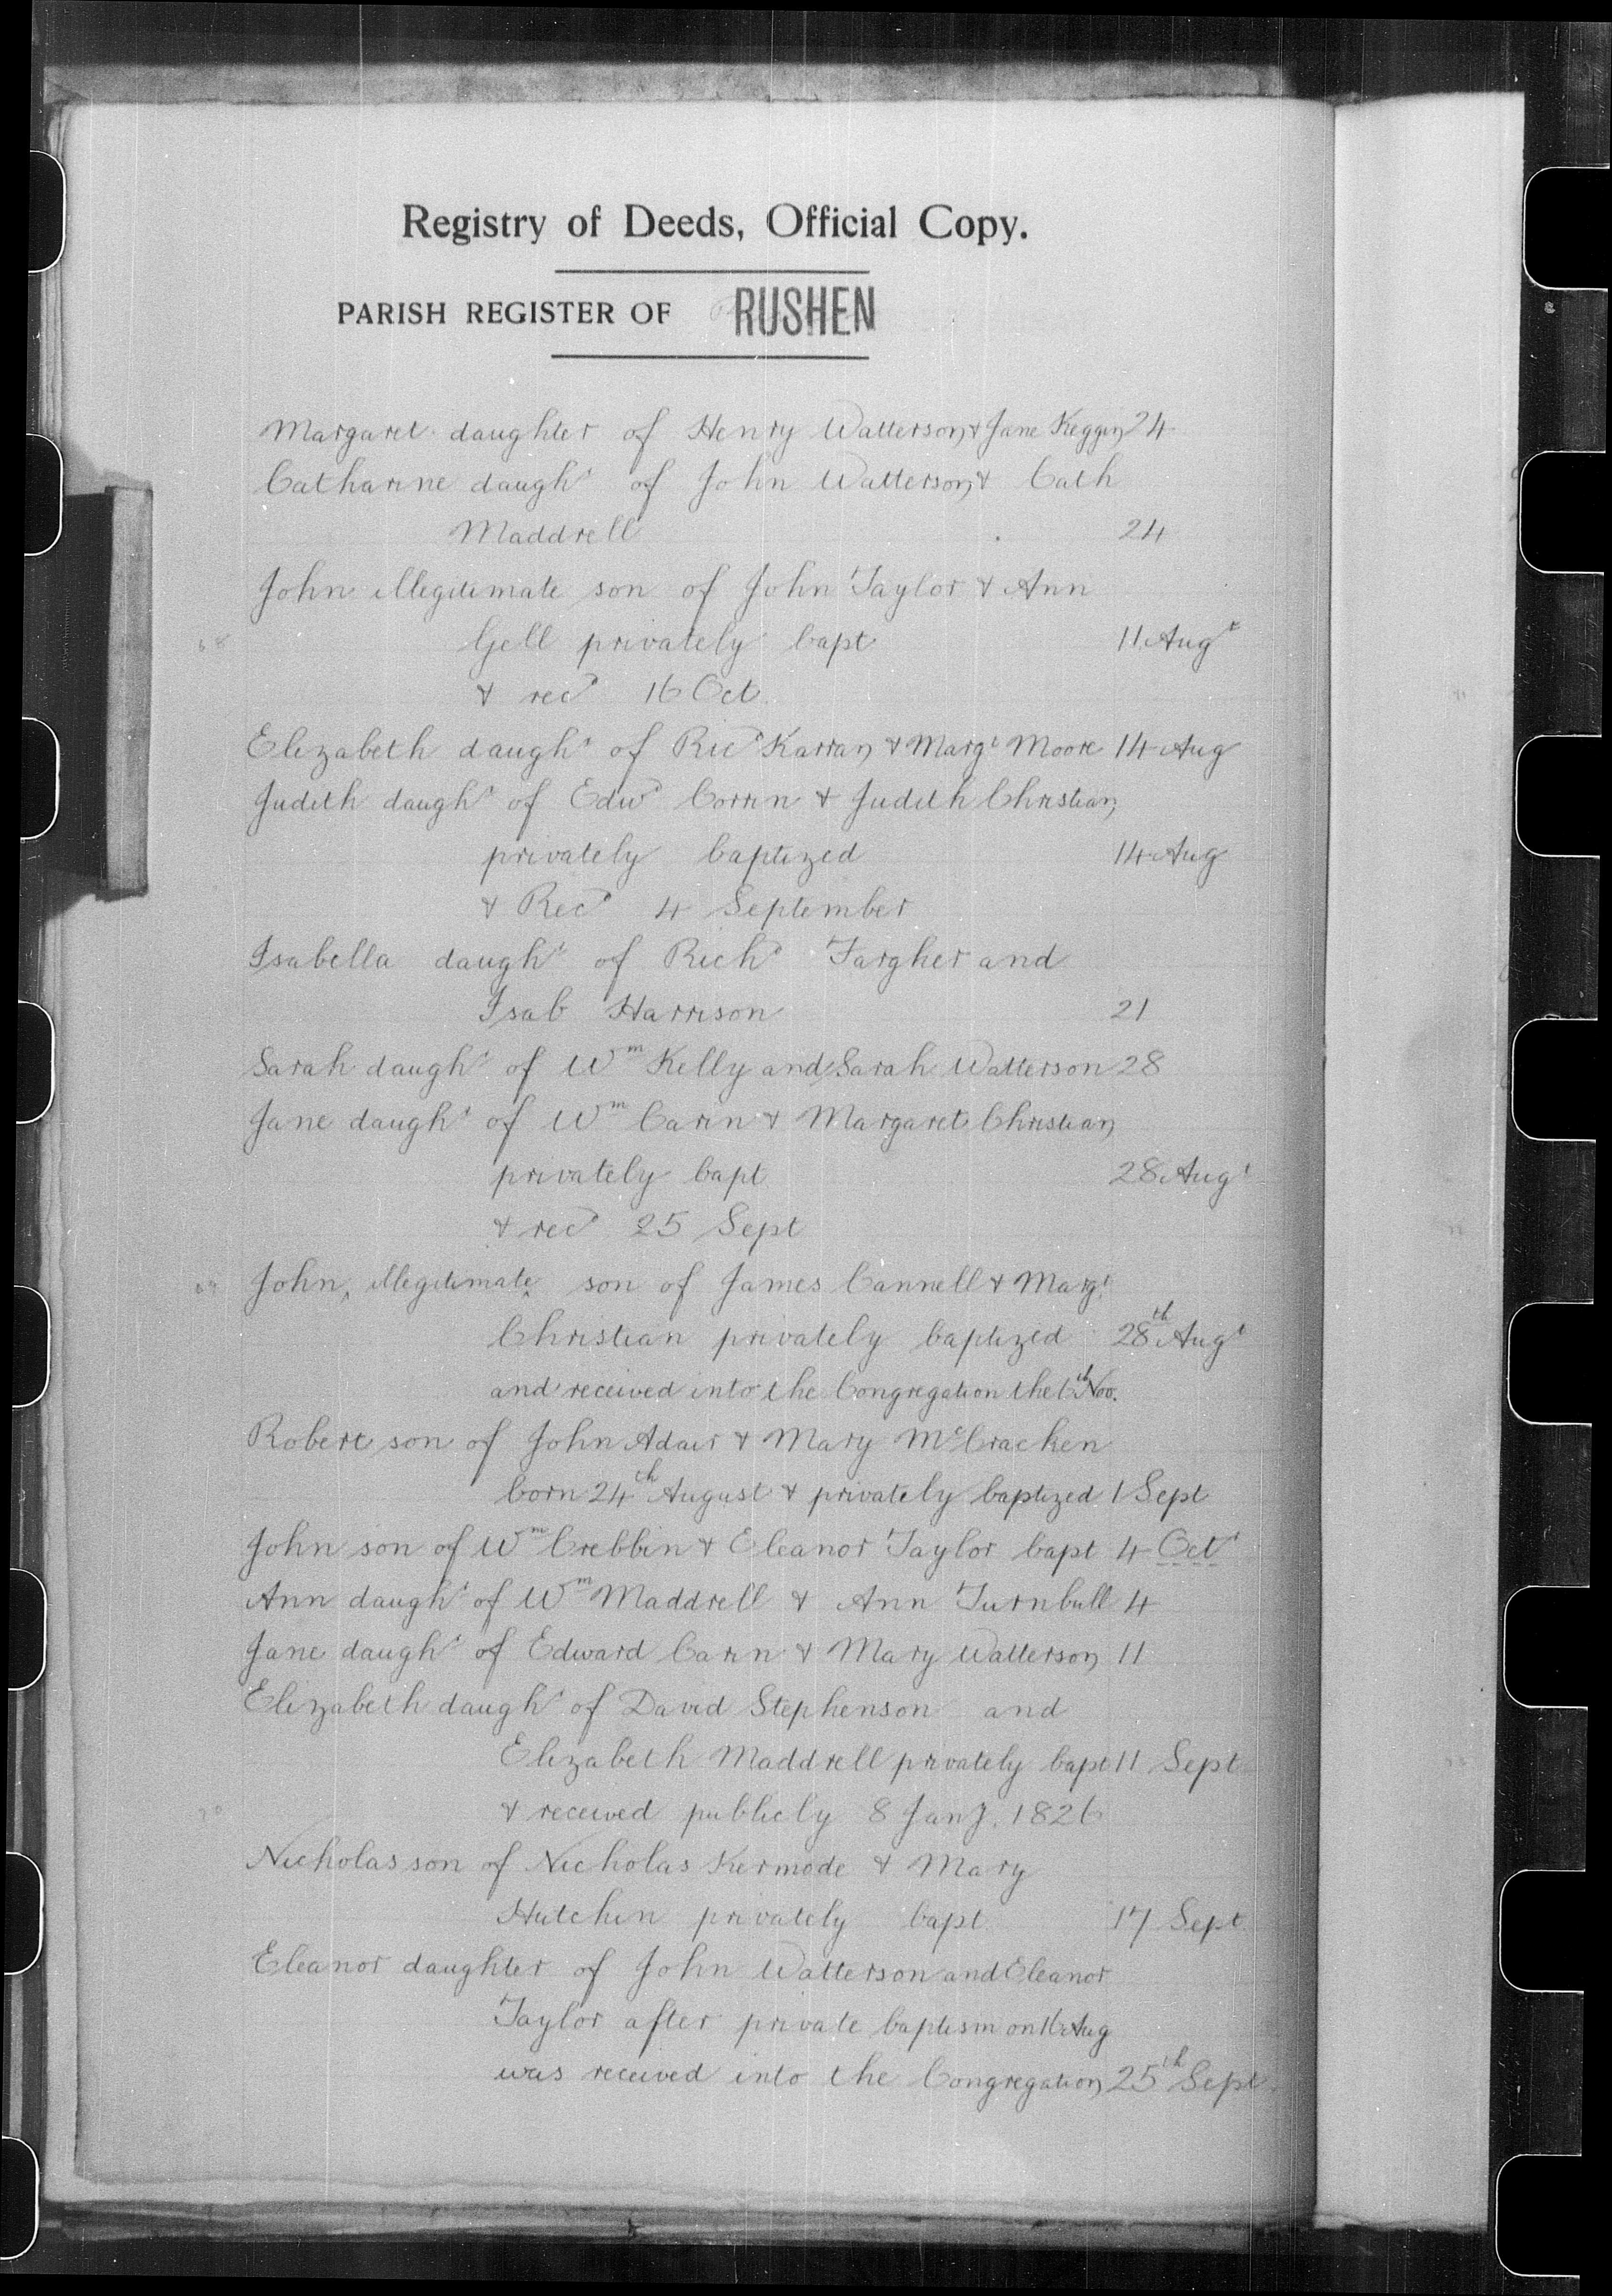 Registry of Deeds, Official Copy.
PARISH REGISTER OF RUSHEN
Margaret daughter of Henry Watterson & Jane Keggin 24
Catharine daughr of John Watterson & Cath
Maddrell 24
John illegitimate son of John Taylor & Ann
68 Gell privately bapt 11 Augt
& recd 16 Oct
Elizabeth daughr of Ricd Karran & Margt Moore 14 Aug
Judith daughr of Edwd Corrin & Judith Christian
privately baptized 14 Aug
& Recd 4 September
Isabella daughr of Richd Fargher and
Isab Harrison 21
Sarah daughr of Wm Kelly and Sarah Watterson 28
Jane daughr of Wm Carin & Margaret Christian
privately bapt 28 Augt
& recd 25 Sept
69 John, illegitimate son of James Cannell & Margt
Christian privately baptized 28th Augt
and received into the Congregation the 6th Nov.
Robert son of John Adair & Mary McCracken
born 24th August & privately baptized 1 Sept
John son of Wm Crebbin & Eleanor Taylor bapt 4 Oct
Ann daughr of Wm Maddrell & Ann Turnbull 4
Jane daughr of Edward Carin & Mary Watterson 11
Elizabeth daughr of David Stephenson and
Elizabeth Maddrell privately bapt 11 Sept
70 & received publicly 8 Jany. 1826
Nicholas son of Nicholas Kermode & Mary
Hutchin privately bapt 17 Sept
Eleanor daughter of John Watterson and Eleanor
Taylor after private baptism on 16 Aug
was received into the Congregation 25th Sept.